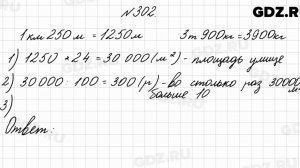 GDZ.R
№302.
1 км 250 м = 1250 м 3 т 900 кг = 3900 кг
1) 1250 * 24 = 30 000 (м²) - площадь улице
2) 30 000 : 100 = 300 (р) - во столько раз 30000
больше 10
3)
Ответ:
GDZ.RU